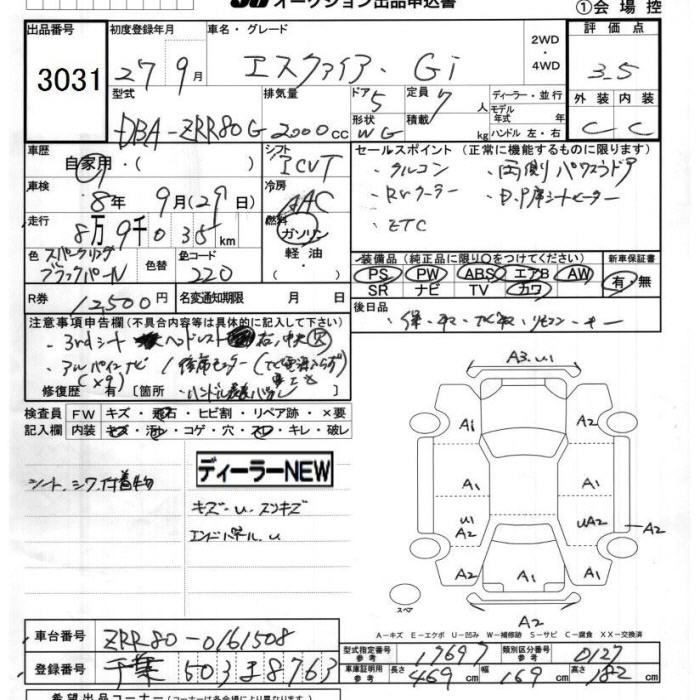 オークション出品申込書
①会場控
出品番号
3031
初度登録年月
27年9月
車名・グレード
エスクァイア・Gi
2WD
・
4WD
評価点
3.5
外装 内装
C C
型式
DBA-ZRR80G
排気量
2000cc
ドア 5
形状 WG
定員 7人
積載 kg
ディーラー・並行
モデル年式 年
ハンドル 左・右
車歴
自家用・( )
シフト
ICVT
車検
8年 9月(29日)
冷房
AAC
走行
8万9千035km
燃料
ガソリン
軽油
・
色
スパークリング
ブラックパール
色替
色コード
220
R券
12,500円
名変通知期限 月 日
セールスポイント(正常に機能するものに限ります)
・クルコン ・両側パワスラドア
・Rrクーラー ・D.P席シートヒーター
・ETC
装備品(純正品に限り○をつけてください)
PS PW ABS エアB AW
SR ナビ TV カワ
新車保証書
有・無
後日品
注意事項申告欄(不具合内容等は具体的に記入して下さい)
・3rdシート ヘッドレスト
・アルパインナビ
修復歴 有[箇所
検査員 FW キズ・飛石・ヒビ割・リペア跡・×要
記入欄 内装 キズ・汚れ・コゲ・穴・スレ・キレ・破レ
シート、シワ、付着物
ディーラーNEW
キズ-U、スンキズ
エンドパネル、U
A3.U1
A1 A2
A1 A1
U1 UA2
A2 A2
A2
A2 A1 A1
スペア
A2
A-キズ E-エクボ U-凹み W-補修跡 S-サビ C-腐食 XX-交換済
車台番号
ZRR80-0161508
登録番号
千葉 503 ま 8763
型式指定番号 参考
17697
類別区分番号 参考
0127
車庫証明用 参考
長さ 469cm 幅 169cm 高さ 182cm
希望出品コーナー(コーナーは各会場により異なります)